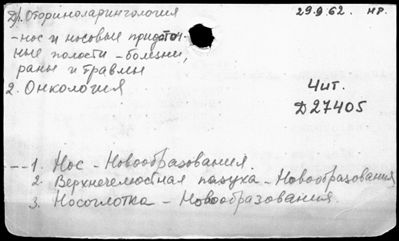 1. Оториноларингология
29.9.62. нр.
- нос и носовые придаточ-
ные полости - болезни,
раны и травмы
2. Онкология
Чит.
Д27405
1. Нос - Новообразования.
2. Верхнечелюстная пазуха - Новообразования
3. Носоглотка - Новообразования.